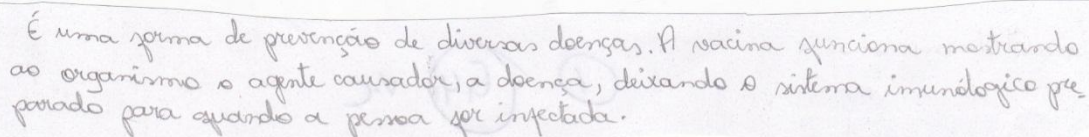 É uma forma de prevenção de diversas doenças. A vacina funciona mostrando
ao organismo o agente causador, a doença, deixando o sistema imunólogico pre-
parado para quando a pessoa for infectada.